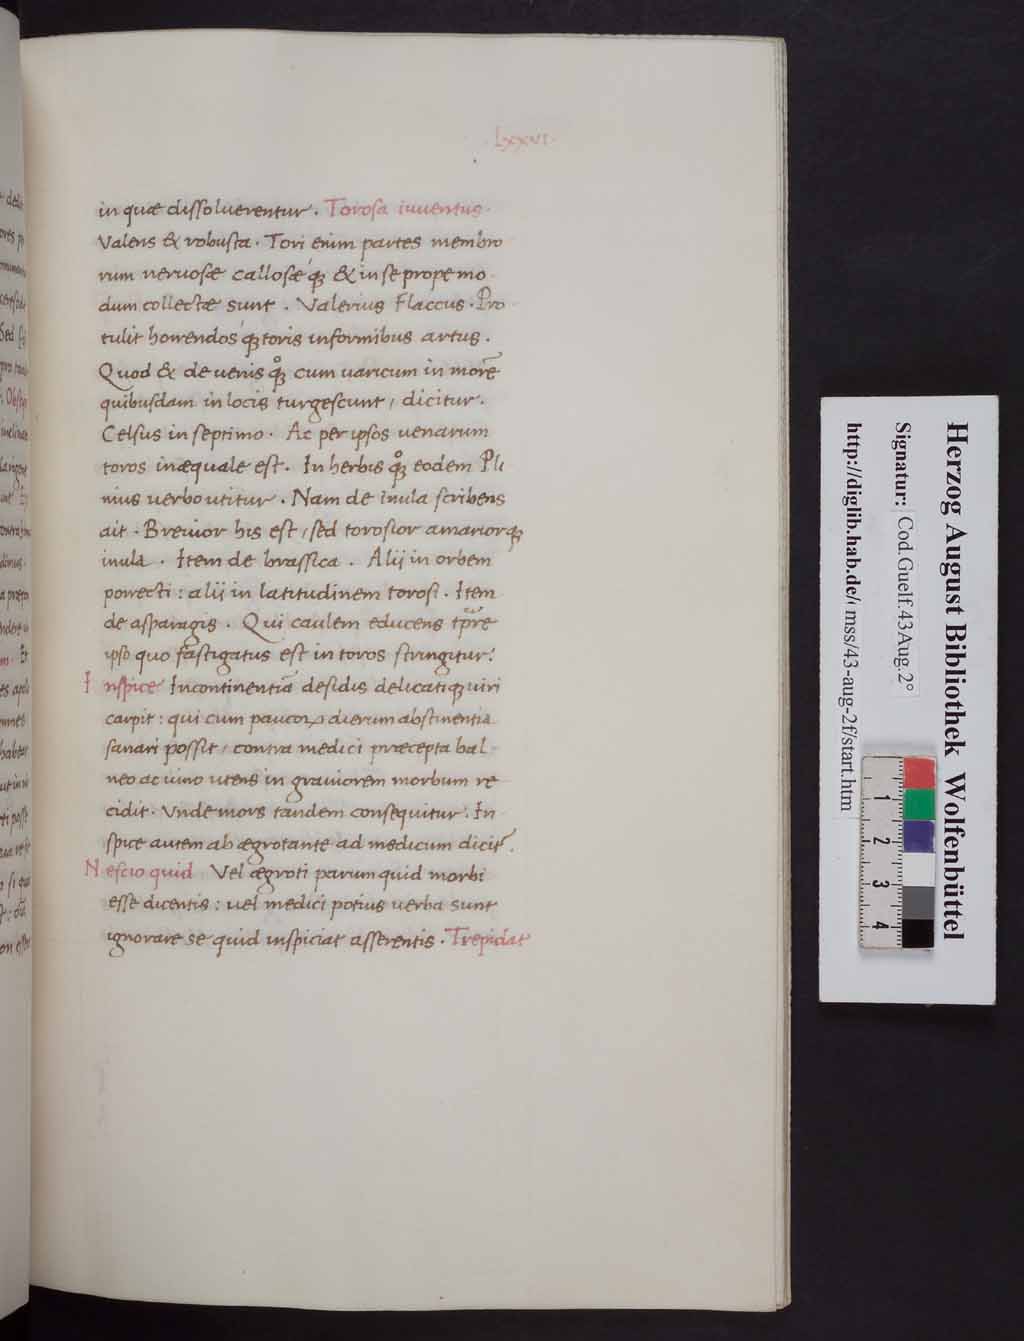 ·Lxxvi·
in quæ dissoluerentur. Torosa iuuentus.
Valens & robusta. Tori enim partes membro
rum neruosæ callosæq3 & in se propemo
dum collectæ sunt. Valerius Flaccus. Pro
tulit horrendosq3 toris informibus artus.
Quod & de uenis q3 cum uaricum in morē
quibusdam in locis turgescunt, dicitur.
Celsus in septimo. Ac per ipsos uenarum
toros inæquale est. In herbis q3 eodem Pli
nius uerbo utitur. Nam de inula scribens
ait. Breuior his est, sed torosior amariorq3
inula. Item de brassica. Alij in orbem
porrecti: alij in latitudinem torosi. Item
de asparagis. Qui caulem educens tp̄re
ipso quo fastigatus est in toros stringitur.
Inspice Incontinentiā desidis delicatiq3 uiri
carpit: qui cum paucoꝝ dierum abstinentia
sanari possit, contra medici præcepta bal
neo ac uino utens in grauiorem morbum re
cidit. Vnde mors tandem consequitur. In
spice autem ab ægrotante ad medicum dicit̄.
Nescio quid Vel ægroti parum quid morbi
esse dicentis: uel medici potius uerba sunt
ignorare se quid inspiciat asserentis. Trepidat
Herzog August Bibliothek Wolfenbüttel
Signatur: Cod.Guelf.43Aug.2°
http://diglib.hab.de/ mss/43-aug-2f/start.htm
1 2 3 4